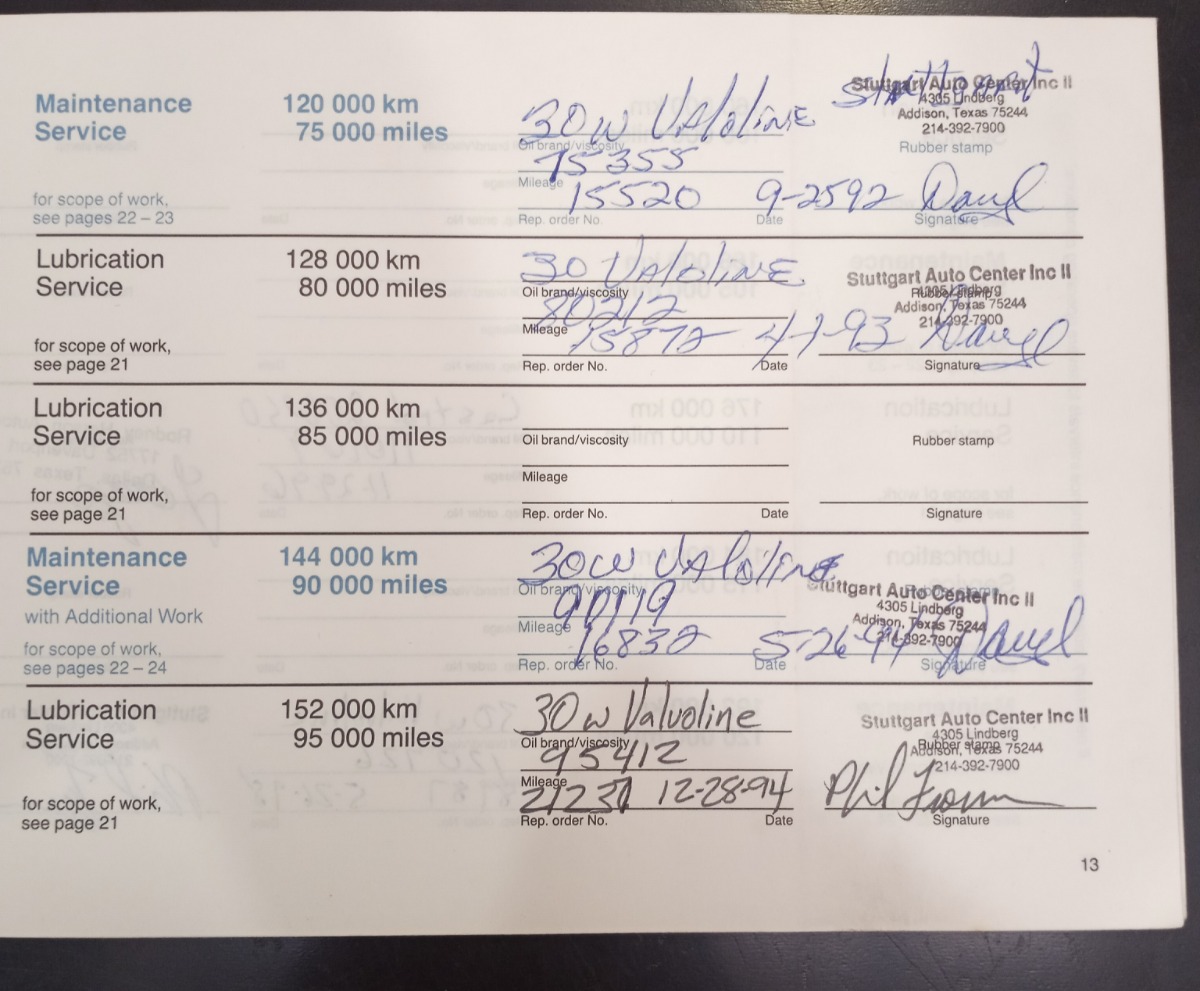 Maintenance 120 000 km
Service 75 000 miles
30W VAlOliNE
Stuttgart
Stuttgart Auto Center Inc II
4305 Lindberg
Addison, Texas 75244
214-392-7900
Oil brand/viscosity
Rubber stamp
75355
Mileage
15520 9-2592
for scope of work,
see pages 22 – 23
Rep. order No. Date Signature
Lubrication 128 000 km
Service 80 000 miles
30 VAlOliNE
Stuttgart Auto Center Inc II
4305 Lindberg
Addison, Texas 75244
214-392-7900
Oil brand/viscosity Rubber stamp
80212
Mileage
15872 4-7-93
for scope of work,
see page 21
Rep. order No. Date Signature
Lubrication 136 000 km
Service 85 000 miles
Oil brand/viscosity Rubber stamp
Mileage
for scope of work,
see page 21
Rep. order No. Date Signature
Maintenance 144 000 km
Service 90 000 miles
with Additional Work
30W VAlOliNE
Stuttgart Auto Center Inc II
4305 Lindberg
Addison, Texas 75244
214-392-7900
Oil brand/viscosity Rubber stamp
Mileage
16832 5-26-94
for scope of work,
see pages 22 – 24
Rep. order No. Date Signature
Lubrication 152 000 km
Service 95 000 miles
30W Valvoline
Stuttgart Auto Center Inc II
4305 Lindberg
Addison, Texas 75244
214-392-7900
Oil brand/viscosity Rubber stamp
95412
Mileage
21237 12-28-94 Phil
for scope of work,
see page 21
Rep. order No. Date Signature
13